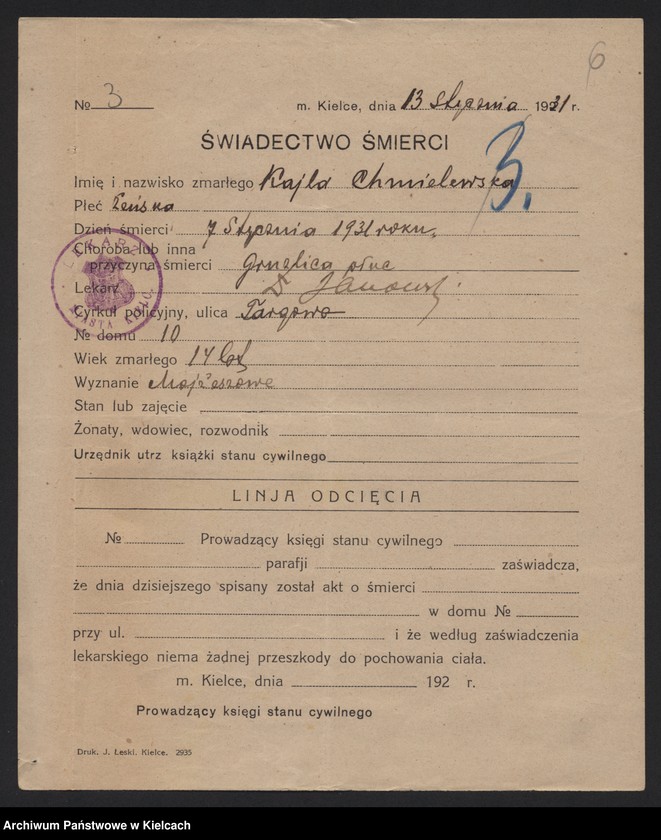 6
№ 3 m. Kielce, dnia 13 stycznia 1931 r.
ŚWIADECTWO ŚMIERCI
3.
Imię i nazwisko zmarłego Kajla Chmielewska
Płeć żeńska
Dzień śmierci 7 Stycznia 1931 roku.
Choroba lub inna
przyczyna śmierci Gruzlica płuc
Lekarz Dr
LEKARZ MIASTA
Cyrkuł policyjny, ulica Targowa
№ domu 10
Wiek zmarłego 14 lat
Wyznanie Mojżeszowe
Stan lub zajęcie
Żonaty, wdowiec, rozwodnik
Urzędnik utrz książki stanu cywilnego
LINJA ODCIĘCIA
№ Prowadzący księgi stanu cywilnego
parafji zaświadcza,
że dnia dzisiejszego spisany został akt o śmierci
w domu №
przy ul. i że według zaświadczenia
lekarskiego niema żadnej przeszkody do pochowania ciała.
m. Kielce, dnia 192 r.
Prowadzący księgi stanu cywilnego
Druk. J. Łeski. Kielce. 2935
Archiwum Państwowe w Kielcach